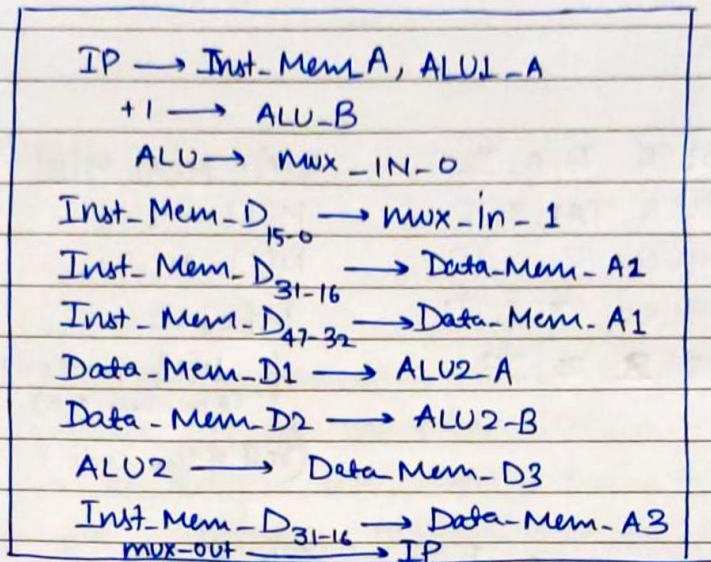 IP → Inst_Mem_A, ALU1_A
+1 → ALU_B
ALU → mux_IN_0
Inst_Mem_D15-0 → mux_in_1
Inst_Mem_D31-16 → Data_Mem_A2
Inst_Mem_D47-32 → Data_Mem_A1
Data_Mem_D1 → ALU2_A
Data_Mem_D2 → ALU2_B
ALU2 → Data_Mem_D3
Inst_Mem_D31-16 → Data_Mem_A3
mux-out → IP